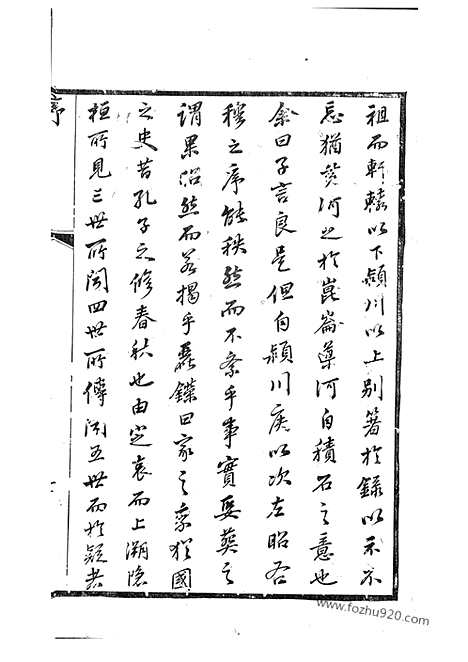 祖而軒轅以下潁川以上別著於錄以示不
忘猶黃河之於崑崙導河自積石之意也
余曰子言良是但自潁川侯以次左昭右
穆之序能秩然而不紊乎事實娶葬之
謂果沿然而若揭乎曰家之乘猶國
之史昔孔子之修春秋也由定哀而上溯隱
桓所見三世所聞四世所傳聞五世而於疑者
序
www.fozhu920.com